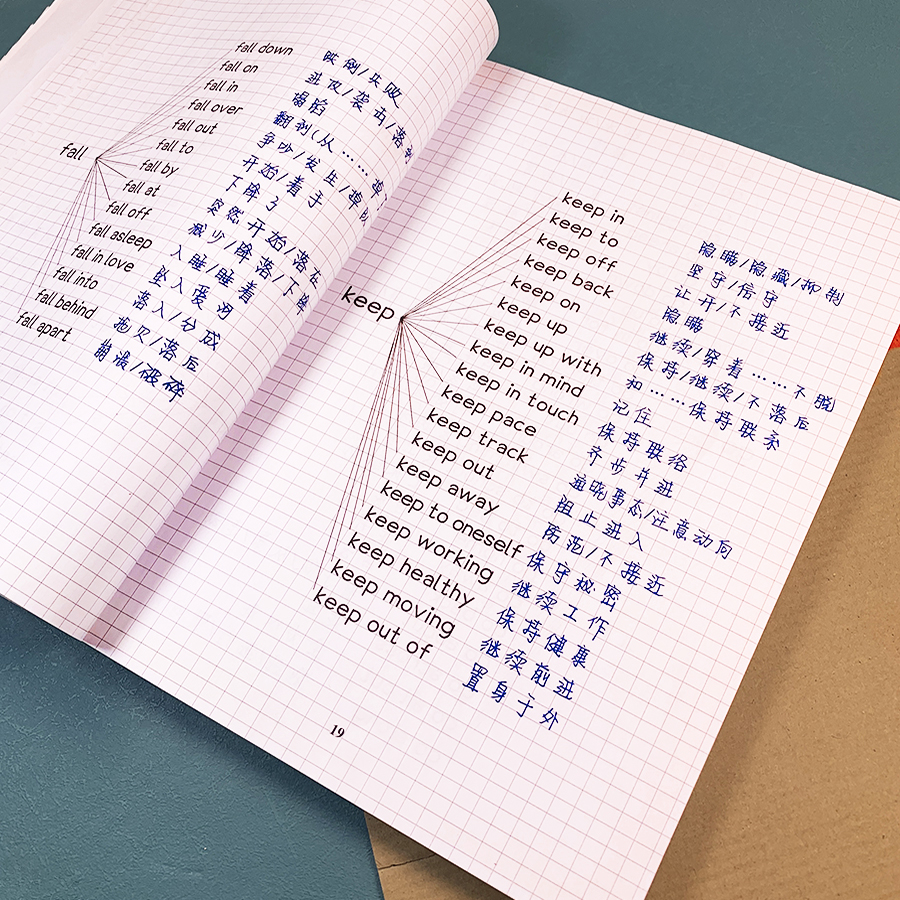 fall
fall down 跌倒/失败
fall on 进攻/袭击/落到
fall in 塌陷
fall over 翻到(从……掉
fall out 争吵/发生/掉队
fall to 开始/着手
fall by 下降了
fall at 突然开始/落在
fall off 减少/降落/下降
fall asleep 入睡/睡着
fall in love 坠入爱河
fall into 落入/分成
fall behind 拖欠/落后
fall apart 崩溃/破碎
keep
keep in 隐瞒/隐藏/抑制
keep to 坚守/信守
keep off 让开/不接近
keep back 隐瞒
keep on 继续/穿着……不脱
keep up 保持/继续/不落后
keep up with 和……保持联系
keep in mind 记住
keep in touch 保持联络
keep pace 齐步并进
keep track 通晓事态/注意动向
keep out 阻止进入
keep away 防范/不接近
keep to oneself 保守秘密
keep working 继续工作
keep healthy 保持健康
keep moving 继续前进
keep out of 置身于外
19